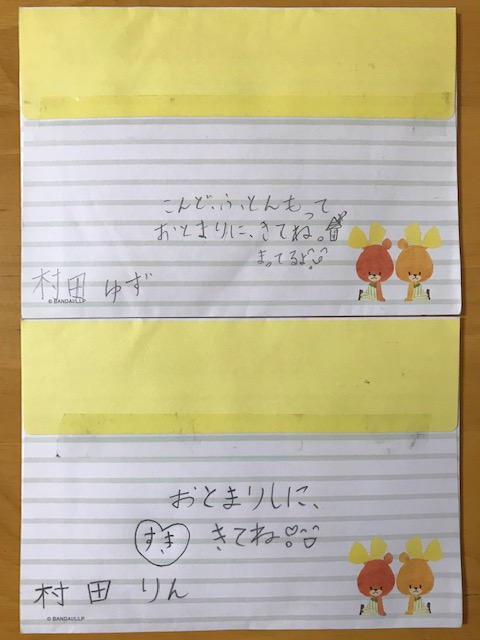 こんど、ふとんもって
おとまりに、きてね。
まってるよ
村田 ゆず
© BANDAI/LLP
おとまりしに、
すき きてね
村田 りん
© BANDAI/LLP